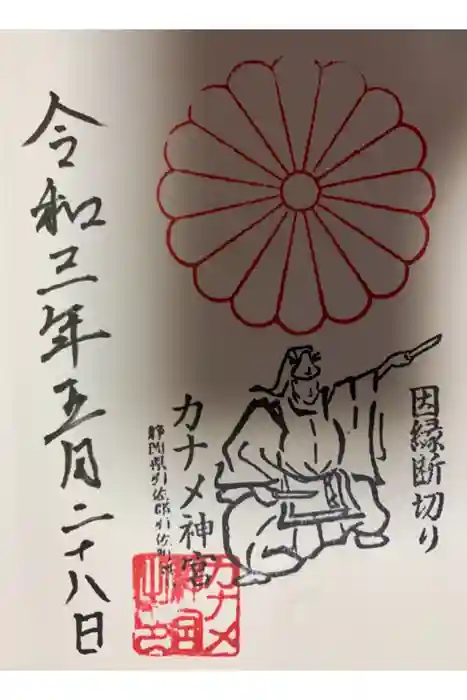 因縁断切り
カナメ神宮
静岡県引佐郡引佐町
令和三年五月二十八日
カナメ